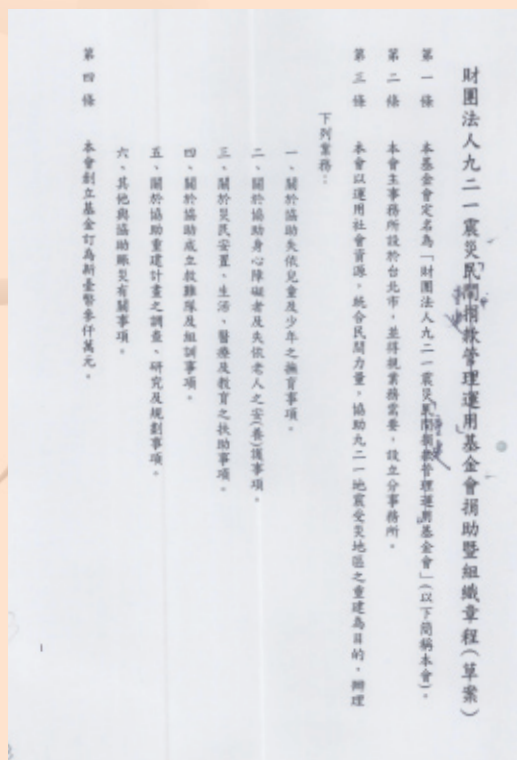 財團法人九二一震災民間捐款管理運用基金會捐助暨組織章程(草案)
第一條 本基金會定名為「財團法人九二一震災民間捐款管理運用基金會」(以下簡稱本會)。
第二條 本會主事務所設於台北市,並得視業務需要,設立分事務所。
第三條 本會以運用社會資源,統合民間力量,協助九二一地震受災地區之重建為目的,辦理
下列業務:
一、關於協助失依兒童及少年之撫育事項。
二、關於協助身心障礙者及失依老人之安(養)護事項。
三、關於災民安置、生活、醫療及教育之扶助事項。
四、關於協助成立救難隊及組訓事項。
五、關於協助重建計畫之調查、研究及規劃事項。
六、其他與協助賑災有關事項。
第四條 本會創立基金訂為新臺幣參仟萬元。
1